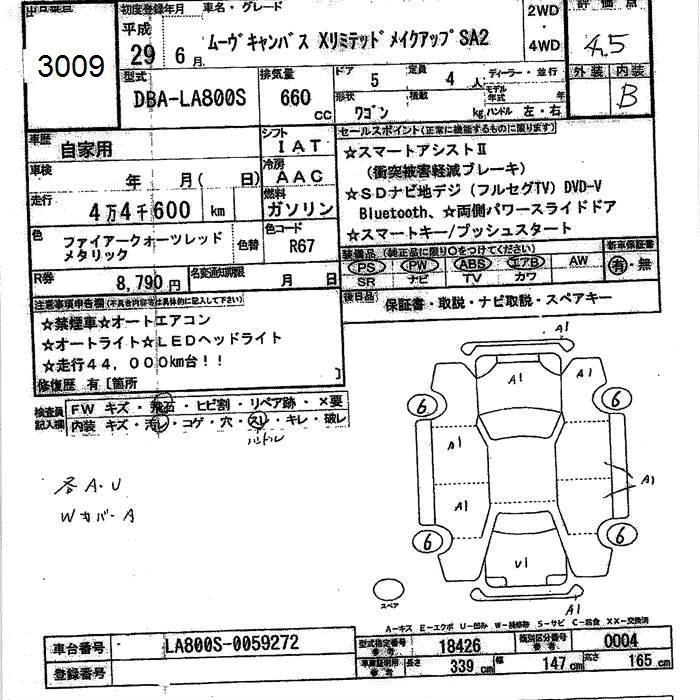 出品番号 初度登録年月 車名・グレード 2WD ・ 4WD 評価点
3009 平成 29 6月 ムーヴキャンバス XリミテッドメイクアップSA2 4.5
外装 内装 B
型式 排気量 ドア 5 定員 4人 ディーラー・並行
DBA-LA800S 660 cc 形状 ワゴン 積載 kg モデル年式 年 ハンドル 左・右
車歴 自家用 シフト IAT
車検 年 月( 日) 冷房 AAC
走行 4万4千600 km 燃料 ガソリン
色 ファイアークォーツレッドメタリック 色替 色コード R67
R券 8,790円 名変通知期限 月 日
セールスポイント(正常に機能するものに限ります)
☆スマートアシストⅡ
(衝突被害軽減ブレーキ)
☆SDナビ地デジ(フルセグTV)DVD-V
Bluetooth、☆両側パワースライドドア
☆スマートキー/プッシュスタート
装備品(純正品に限り○をつけてください) 新車保証書
PS PW ABS エアB AW 有・無
SR ナビ TV カワ
後日品 保証書・取説・ナビ取説・スペアキー
注意事項申告欄(不具合内容等は具体的に記入して下さい)
☆禁煙車☆オートエアコン
☆オートライト☆LEDヘッドライト
☆走行44,000km台!!
修復歴 有〔箇所 〕
検査員記入欄 FW キズ・飛石・ヒビ割・リペア跡・×要
内装 キズ・汚レ・コゲ・穴・スレ・キレ・破レ
ハンドル
各A・U
Wカバ-A
A1
A1 A1
6 6
A1
A1 A1
6 6
U1
A1
スペア
A-キズ E-エクボ U-凹み W-補修跡 S-サビ C-腐食 XX-交換済
車台番号 LA800S-0059272 型式指定番号 参考 18426 類別区分番号 参考 0004
登録番号 車庫証明用 参考 長さ 339cm 幅 147cm 高さ 165cm